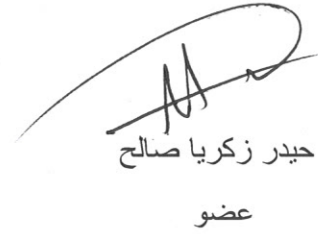 حيدر زكريا صالح
عضو